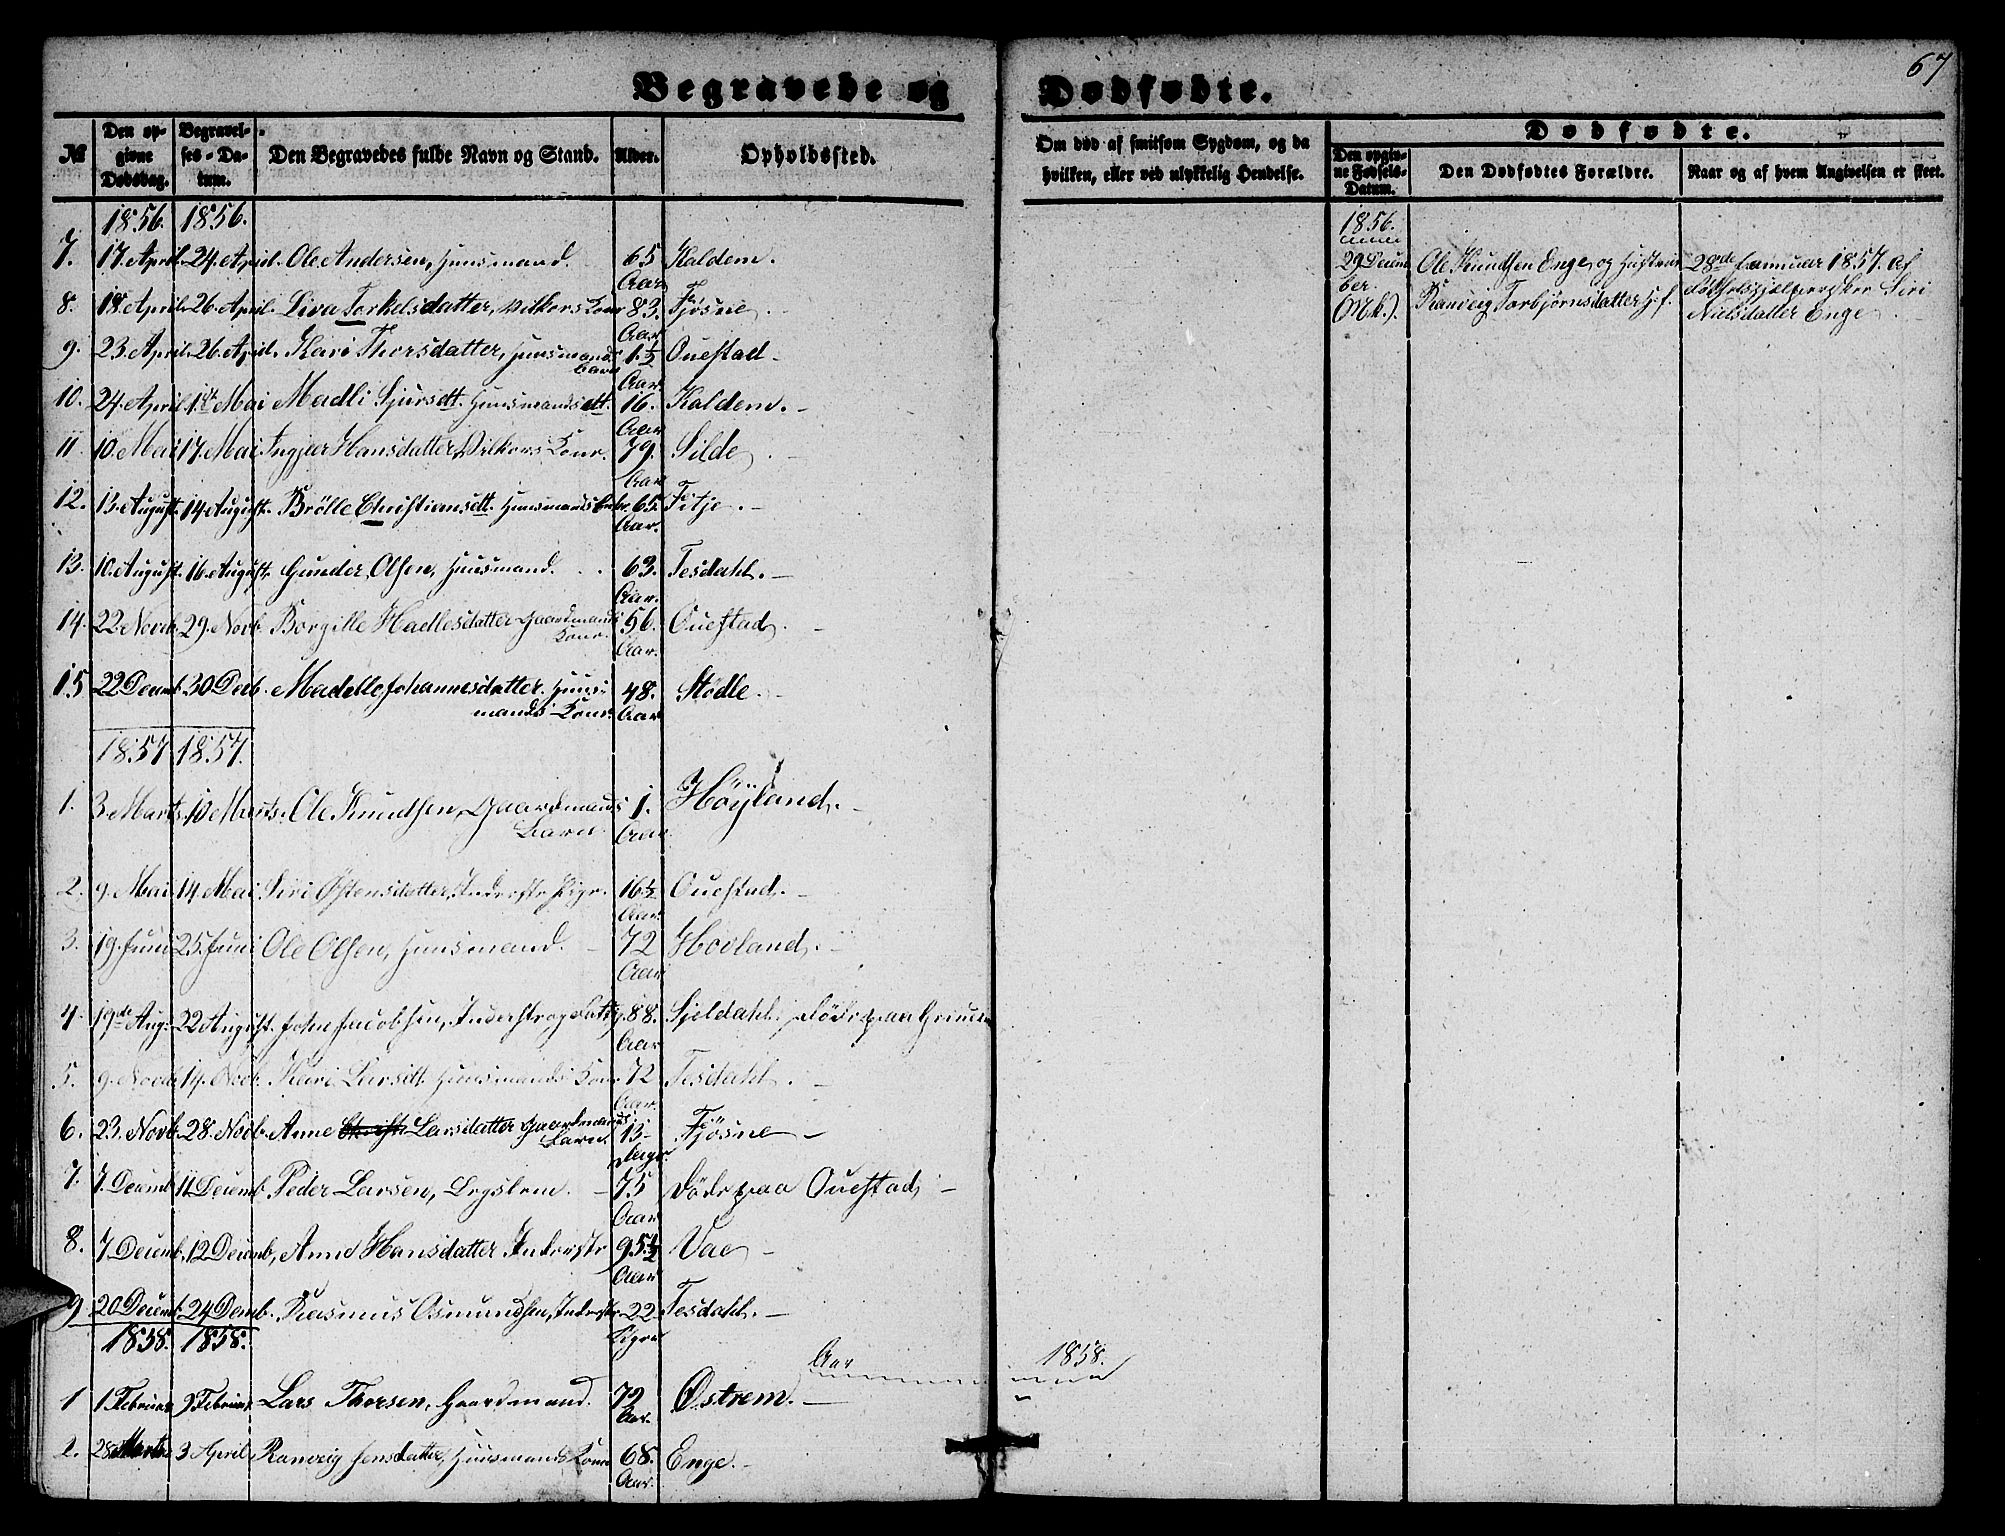 67
Begravede og Dødfødte.
№ Den opgivne Dødsdag. Begravelses-Datum. Den Begravedes fulde Navn og Stand. Alder. Opholdssted. Om død af smitsom Sygdom, og da hvilken, eller ved ulykkelig Hendelse. Dødfødte. Den opgivne Fødsels-Datum. Den Dødfødtes Forældre. Naar og af hvem Angivelsen er skeet.
1856. 1856.
7. 17. April. 24. April. Ole Andersen, Huusmand. 65 Aar Kaldem.
8. 18. April. 26. April. Siva Torkelsdatter, Vilkors Kone 83. Aar Fjøsne.
9. 23. April. 26. April. Kari Thorsdatter, Huusmands Barn 1½ Aar Ouestad -
10. 24. April. 1ste Mai Madli Sjursdtt. Huusmandsdtt. 16. Aar Kaldem. -
11 10. Mai 17. Mai Ingjer Hansdatter, Vilkors Kone. 79. Aar Silde -
12. 13. August. 14. August. Brölle Christiansdtt. Huusmands 65. Aar. Fitje. -
13. 10. August. 16. August. Gunder Olsen, Huusmand. 63. Aar. Tesdahl. -
14. 22. Novb. 29. Novb. Borgille Hadlesdatter Gaardmands Kone. 56. Aar. Ouestad. -
15 22 Decemb. 30 Decb. Madelle Johannesdatter. Huusmands Kone. 48. Aar Stödle. -
1857. 1857.
1. 3. Marts. 10. Marts. Ole Knudsen, Gaardmands Barn. 1. Aar Höyland. -
2. 9. Mai 14. Mai Siri Östensdatter, Inderste Pige. 16½ Aar. Ouestad. -
3. 19. Juni 25. Juni Ole Olsen, Huusmand. - 72 Aar Hovland. -
4. 19de Aug. 22 August. John Jacobsen, Inderst og Fattig. 88. Aar Sjeldahl. döde paa
5. 9. Novb. 14. Novb. Kari Larsdtt. Huusmands Kone 72 Aar. Tesdahl. -
6. 23. Novb. 28. Novb. Anne Larsdatter Gaardmands Barn. 13 Dage. Fjösne -
7. 7. Decemb. 11 Decemb. Peder Larsen, Lægslem. - 75 Aar döde paa Ouestad -
8. 7 Decemb. 12 Decemb, Anne Hansdatter Inderste 95½ Aar Vae -
9 20 Decemb. 24 Demb. Rasmus Osmundsen, Inderste 22 Uger Tesdahl. -
1858. 1858.
Aar 1858.
1 1. Februar 9 Februar Lars Thorsen, Gaardmand. 72 Aar. Østrem. -
2. 28 Marts 3 April Ranveig Jensdatter, Huusmands Kone 68. Aar. Enge. -
1856.
29 December. (Mk.). Ole Knudsen Enge, og Hustrue Ranveig Torbjørnsdatter H.f. 28de Januar 1857. af Siri Nielsdatter Enge.